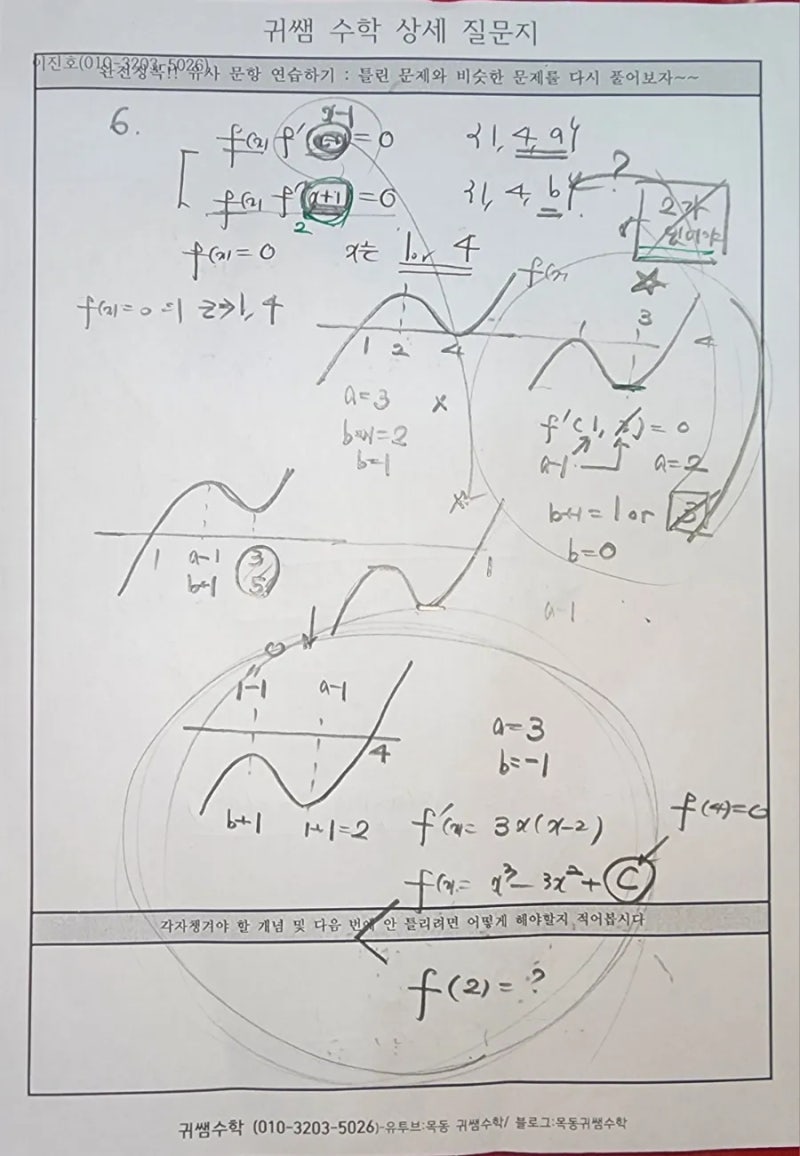 귀쌤 수학 상세 질문지
이진호(010-3203-5026)
완전정복!! 유사 문항 연습하기 : 틀린 문제와 비슷한 문제를 다시 풀어보자~~
6.
x-1
f(x) f'( ) = 0 {1, 4, a}
f(x) f'(x+1) = 0 {1, 4, b} ?
2
f(x) = 0 x는 1 or 4
f(x) = 0 1, 4
f(x)
1 2 4
3
4
a=3 x
=2
b=1
f'(1, ) = 0
a-1 a=2
b+1 = 1 or 3
b=0
1 a-1 3
b+1 5
1
a-1
0
1-1 a-1
4
b+1 1+1=2
a=3
b=-1
f'(x)= 3x(x-2)
f(4)=0
f(x)= x³-3x²+C
각자챙겨야 할 개념 및 다음 번에 안 틀리려면 어떻게 해야할지 적어봅시다
f(2) = ?
귀쌤수학 (010-3203-5026)-유투브:목동 귀쌤수학/ 블로그:목동귀쌤수학